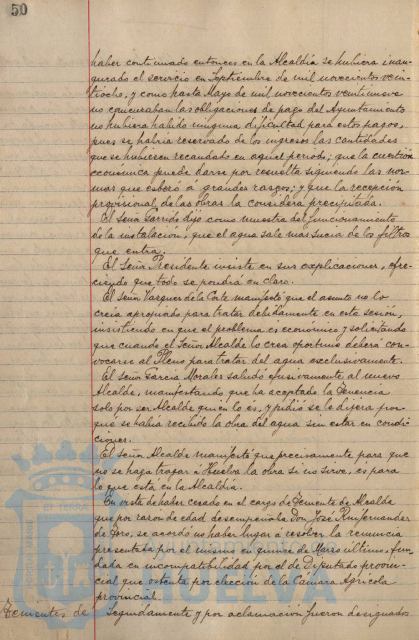 50
haber continuado entonces en la Alcaldía se hubiera inau-
gurado el servicio en Septiembre de mil novecientos vein-
tiocho, y como hasta Mayo de mil novecientos veintinueve
no comenzaban las obligaciones de pago del Ayuntamiento
no hubiera habido ninguna dificultad para estos pagos,
pues se habria reservado de los ingresos las cantidades
que se hubieren recaudado en aquel periodo; que la cuestión
económica puede darse por resuelta siguiendo las nor-
mas que esbozó a grandes rasgos; y que la recepción
provisional de las obras la considera precipitada.
El Señor Garrido dijo como muestra del funcionamiento
de la instalación, que el agua sale mas sucia de los filtros
que entra.
El Señor Presidente insiste en sus explicaciones, ofre-
ciendo que todo se pondrá en claro.
El Señor Vazquez de la Corte manifestó que el asunto no lo
creia apropiado para tratar debidamente en esta sesión,
insistiendo en que el problema es económico y solicitando
que cuando el Señor Alcalde lo crea oportuno deberá con-
vocarse al Pleno para tratar del agua exclusivamente.
El Señor Garcia Morales saludó efusivamente al nuevo
Alcalde, manifestando que ha aceptado la Tenencia
solo por ser Alcalde quien lo es, y pidió se le dijera por
qué se habia recibido la obra del agua sin estar en condi-
ciones.
El señor Alcalde manifestó que precisamente para que
no se haga tragar a Huelva la obra si no sirve, es para
lo que está en la Alcaldía.
En vista de haber cesado en el cargo de Teniente de Alcalde
que por razon de edad desempeñaba Don José Ruifernandez
de, se acordó no haber lugar a resolver la renuncia
presentada por el mismo en quince de Marzo ultimo, fun-
dada en incompatibilidad por el de Diputado provin-
cial que ostenta por elección de la Cámara Agricola
provincial.
Tenientes de Seguidamente y por aclamación fueron designados
HUELVA